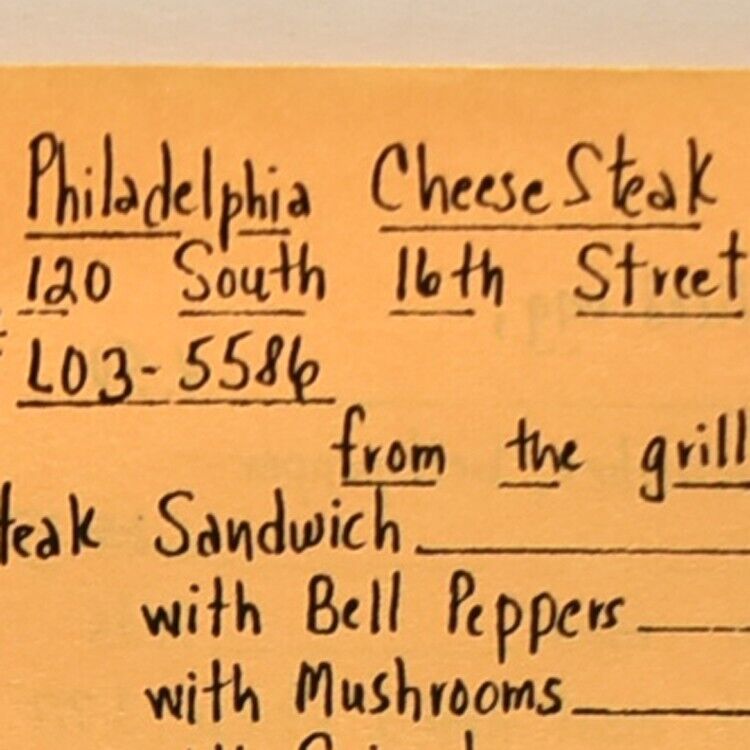 Philadelphia Cheese Steak
120 South 16th Street
LO3-5586
from the grill
teak Sandwich
with Bell Peppers
with Mushrooms